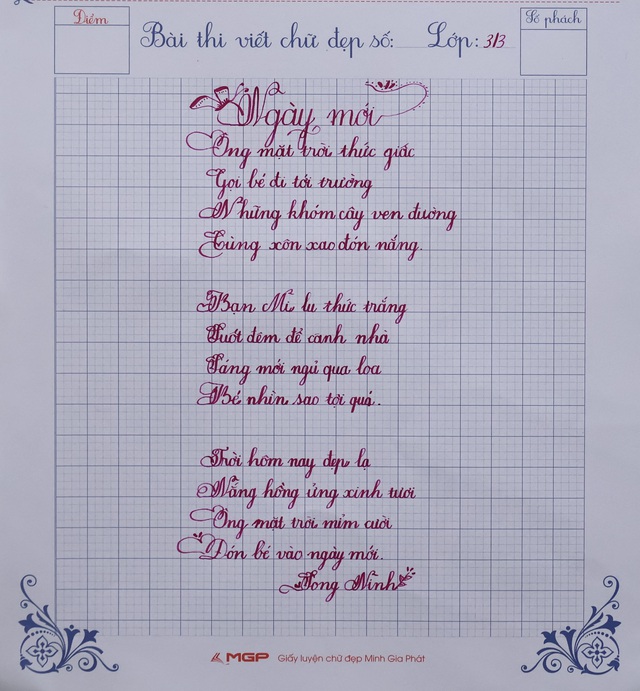 Điểm
Bài thi viết chữ đẹp số: Lớp: 3/3
Số phách
Ngày mới
Ông mặt trời thức giấc
Gọi bé đi tới trường
Những khóm cây ven đường
Cùng xôn xao đón nắng.
Bạn Mi lu thức trắng
Suốt đêm để canh nhà
Sáng mới ngủ qua loa
Bé nhìn sao tội quá.
Trời hôm nay đẹp lạ
Nắng hồng ửng xinh tươi
Ông mặt trời mỉm cười
Đón bé vào ngày mới.
Song Ninh
MGP Giấy luyện chữ đẹp Minh Gia Phát